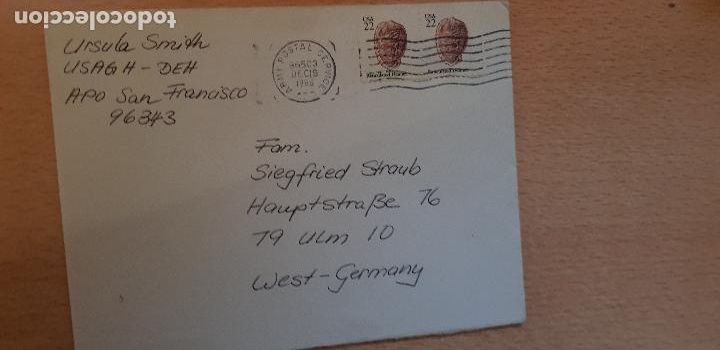 todocoleccion
Ursula Smith
USAGH-DEH
APO San Francisco
96343
ARMY POSTAL SERVICE
DEC 15
USA
22
USA
22
Frilled Dogwinkle
Fam.
Siegfried Straub
Hauptstraße 76
79 Ulm 10
West-Germany